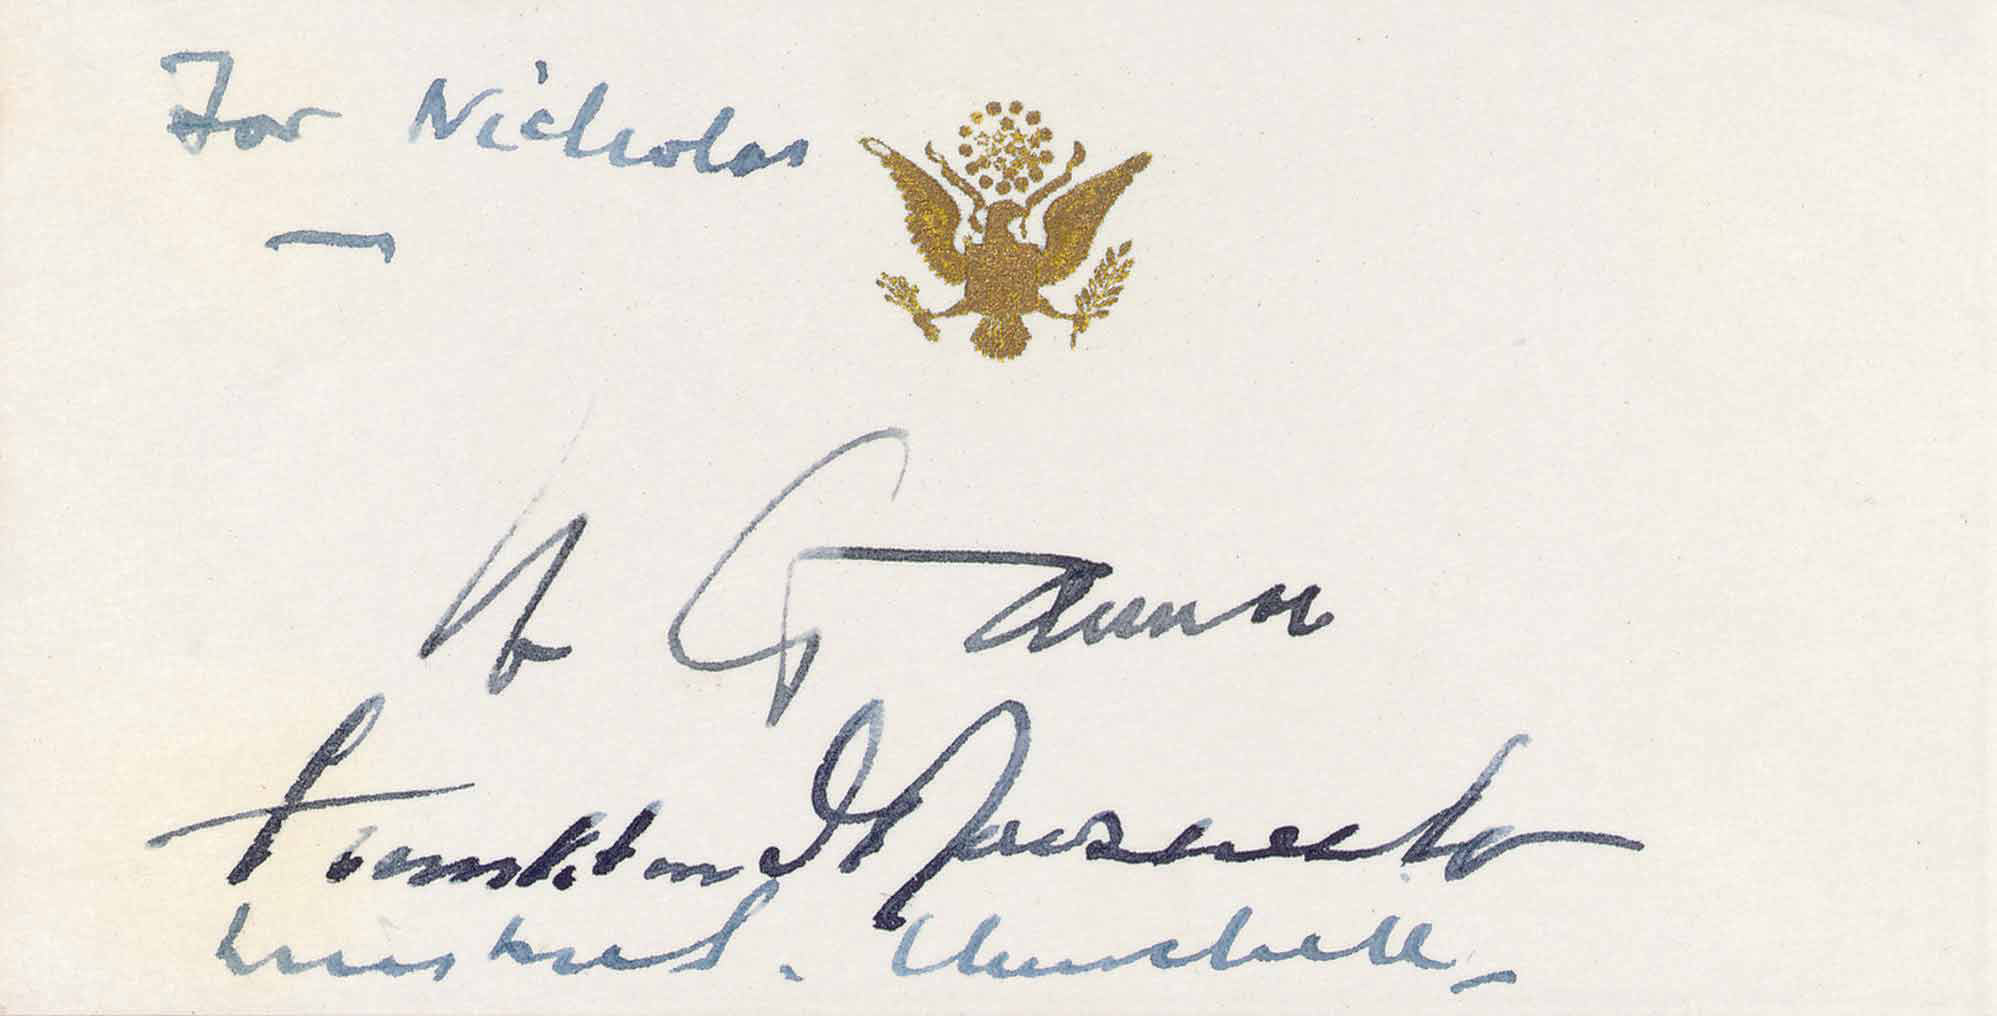 For Nicholas
И Сталин
Franklin D Roosevelt
Winston S. Churchill